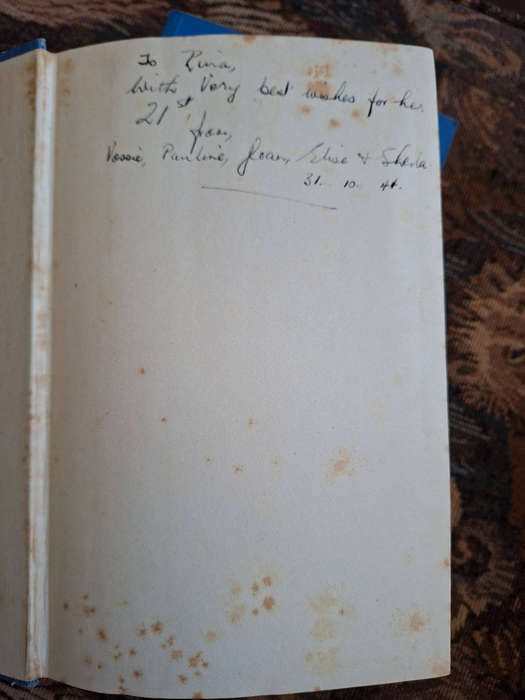 To Rina,
With Very best wishes for her
21st
from,
Pauline, Joan, Elise & Sheila
31. 10. 41.